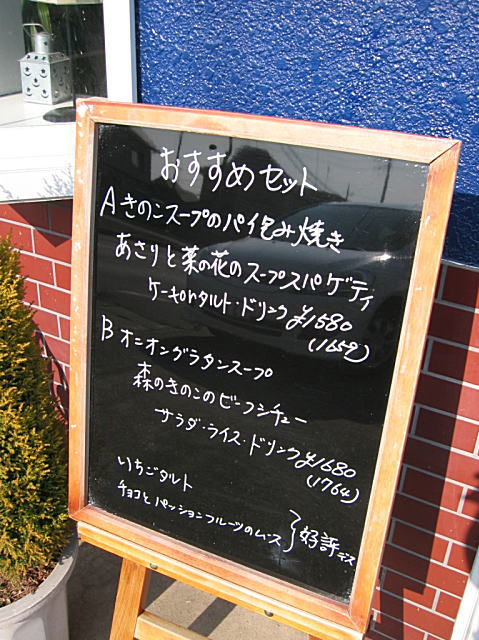 おすすめセット
Aきのこスープのパイ包み焼き
あさりと菜の花のスープスパゲティ
ケーキorタルト・ドリンク ¥1580
(1659)
Bオニオングラタンスープ
森のきのこのビーフシチュー
サラダ・ライス・ドリンク ¥1680
(1764)
いちごタルト
チョコとパッションフルーツのムース } 好評デス